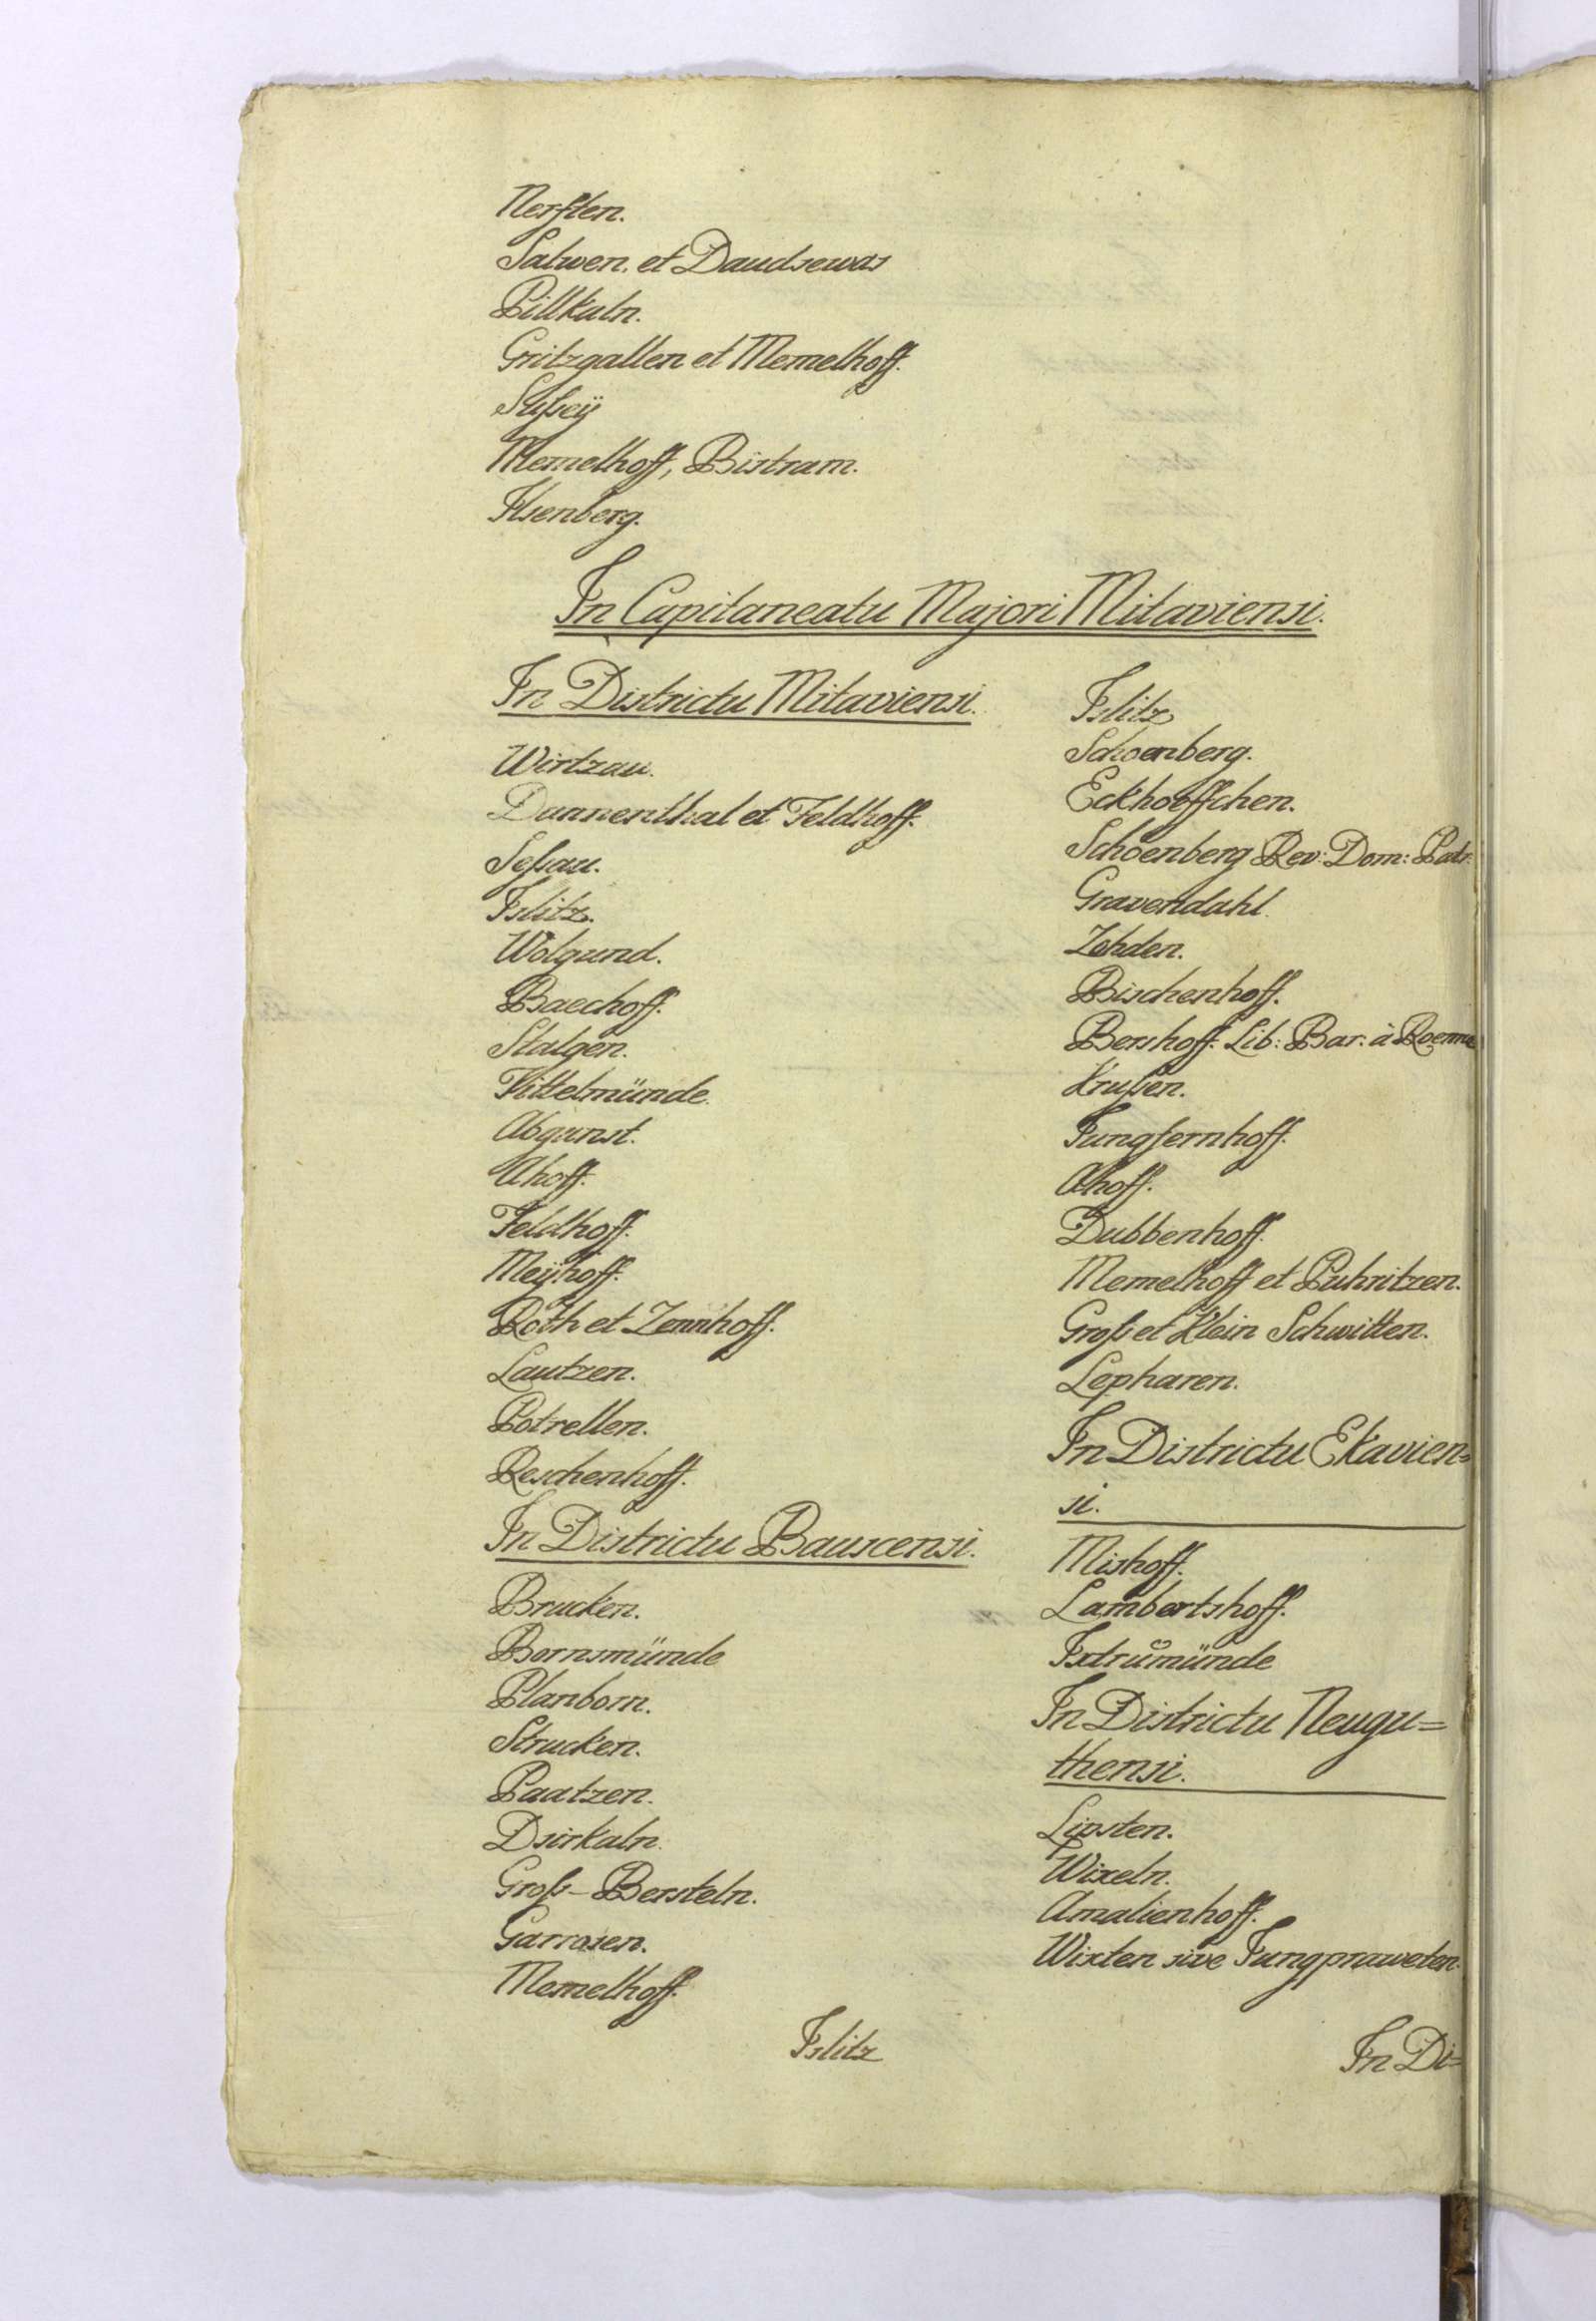 Nerften.
Salwen. et Daudsewas
Pillkaln.
Gritzgallen et Memelhoff.
Sußeÿ
Memelhoff, Bistram.
Ilsenberg.
In Capitaneatu Majori Mitaviensi.
In Districtu Mitaviensi.
Wirtzau.
Dannenthal et Feldhoff.
Seßau.
Islitz.
Wolgund.
Baechoff.
Stalgen.
Vittelmünde.
Abgunst.
Ahoff.
Feldhoff.
Meÿhoff.
Roth et Zennhoff.
Lautzen.
Potrellen.
Reschenhoff.
In Districtu Bauscensi.
Brucken.
Bornsmünde
Planborn.
Strucken.
Paatzen.
Dsirkaln.
Groß-Bersteln.
Garrosen.
Memelhoff.
Islitz
Islitz
Schoenberg.
Eckhoeffchen.
Schoenberg Rev: Dom: Patr:
Gravendahl.
Zohden.
Bischenhoff.
Bershoff. Lib: Bar: à Roenne
Krußen.
Jungfernhoff.
Ahoff.
Dubbenhoff.
Memelhoff et Puhnitzen.
Groß et Klein Schwitten.
Lepharen.
In Districtu Ekavien=
si.
Mishoff.
Lambertshoff.
Ixtrumünde
In Districtu Neugu=
thensi.
Lipsten.
Wixeln.
Amalienhoff.
Wixten sive Jungpraweten.
In Di=